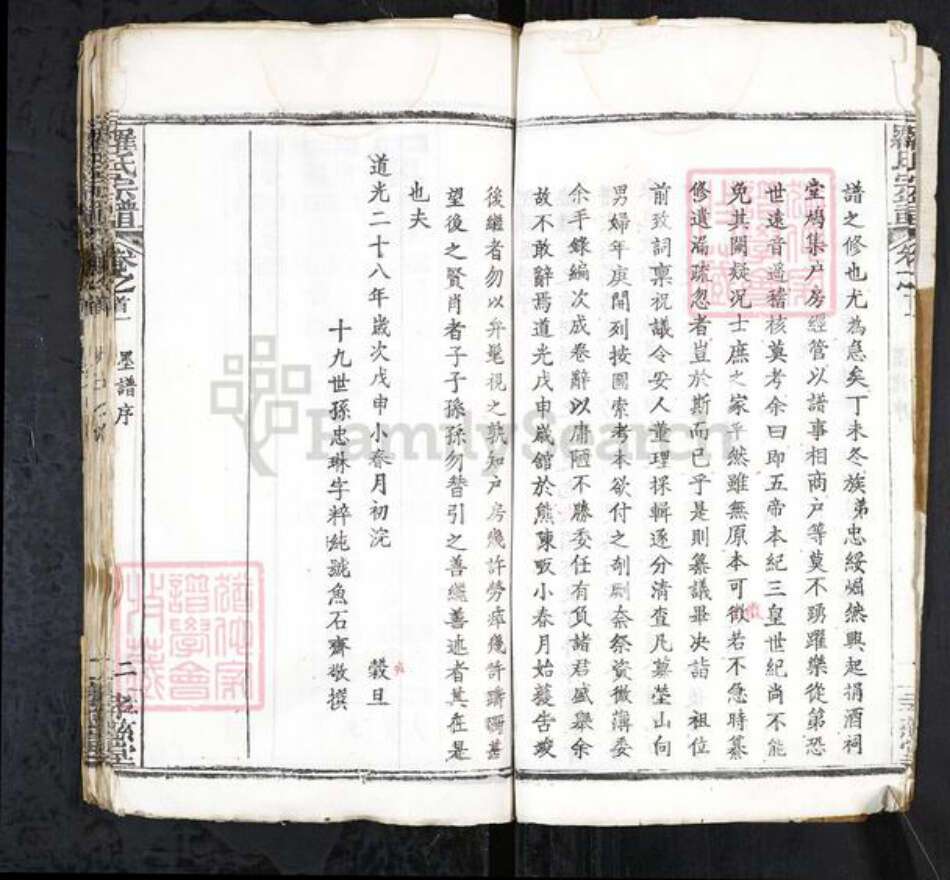 譜之修也尤為急矣丁未冬族弟忠綏崛然興起捐酒祠
堂鳩集户房經管以譜事相商户等莫不踴躍樂從第恐
世遠音遥稽核莫考余曰即五帝本紀三皇世紀尚不能
免其闕疑況士庶之家乎然雖無原本可徵若不急時纂
修遺漏疏忽者豈於斯而已乎是則纂議畢决詣 祖位
前致詞禀祝議令妥人董理採輯逐分清查凡墓塋山向
男婦年庚開列按圖索考本欲付之剞劂奈祭資微薄委
余手錄編次成卷辭以庸陋不勝委任有負諸君盛舉余
故不敢辭焉道光戊申歲舘於熊陳畈小春月始獲告竣
後繼者勿以弁髦視之孰知户房幾許勞瘁幾許躊躇甚
望後之賢肖者子子孫孫勿替引之善繼善述者其在是
也夫
道光二十八年歲次戊申小春月初浣 穀旦
十九世孫忠琳字粹純號魚石齋敬撰
羅氏宗譜 卷之首 墨譜序 二
FamilySearch